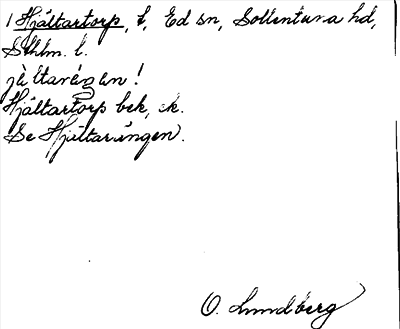 1 Hjältartorp, t, Ed sn, Sollentuna hd,
Sthlm. l.
jà ltaréǥan!
Hjältartorp bek, ek.
Se Hjältarängen.
O. Lundberg